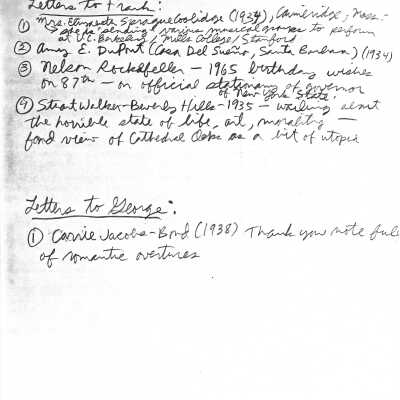 Letters to Frank:
① Mrs. Elizabeth Sprague Coolidge (1934), Cambridge, Mass.
sending various musical groups to perform
at U.C. Berkeley / Mills College / Stanford
② Amy E. DuPont (Casa Del Sueño, Santa Barbara) (1934)
③ Nelson Rockefeller - 1965 birthday wishes
on 87th - on official stationary of governor
of New York State.
④ Stuart Walker - Beverly Hills - 1935 - wailing about
the horrible state of life, art, morality -
fond view of Cathedral Oaks as a bit of utopia
Letters to George:
① Carrie Jacobs-Bond (1938) Thank you note full
of romantic overtures